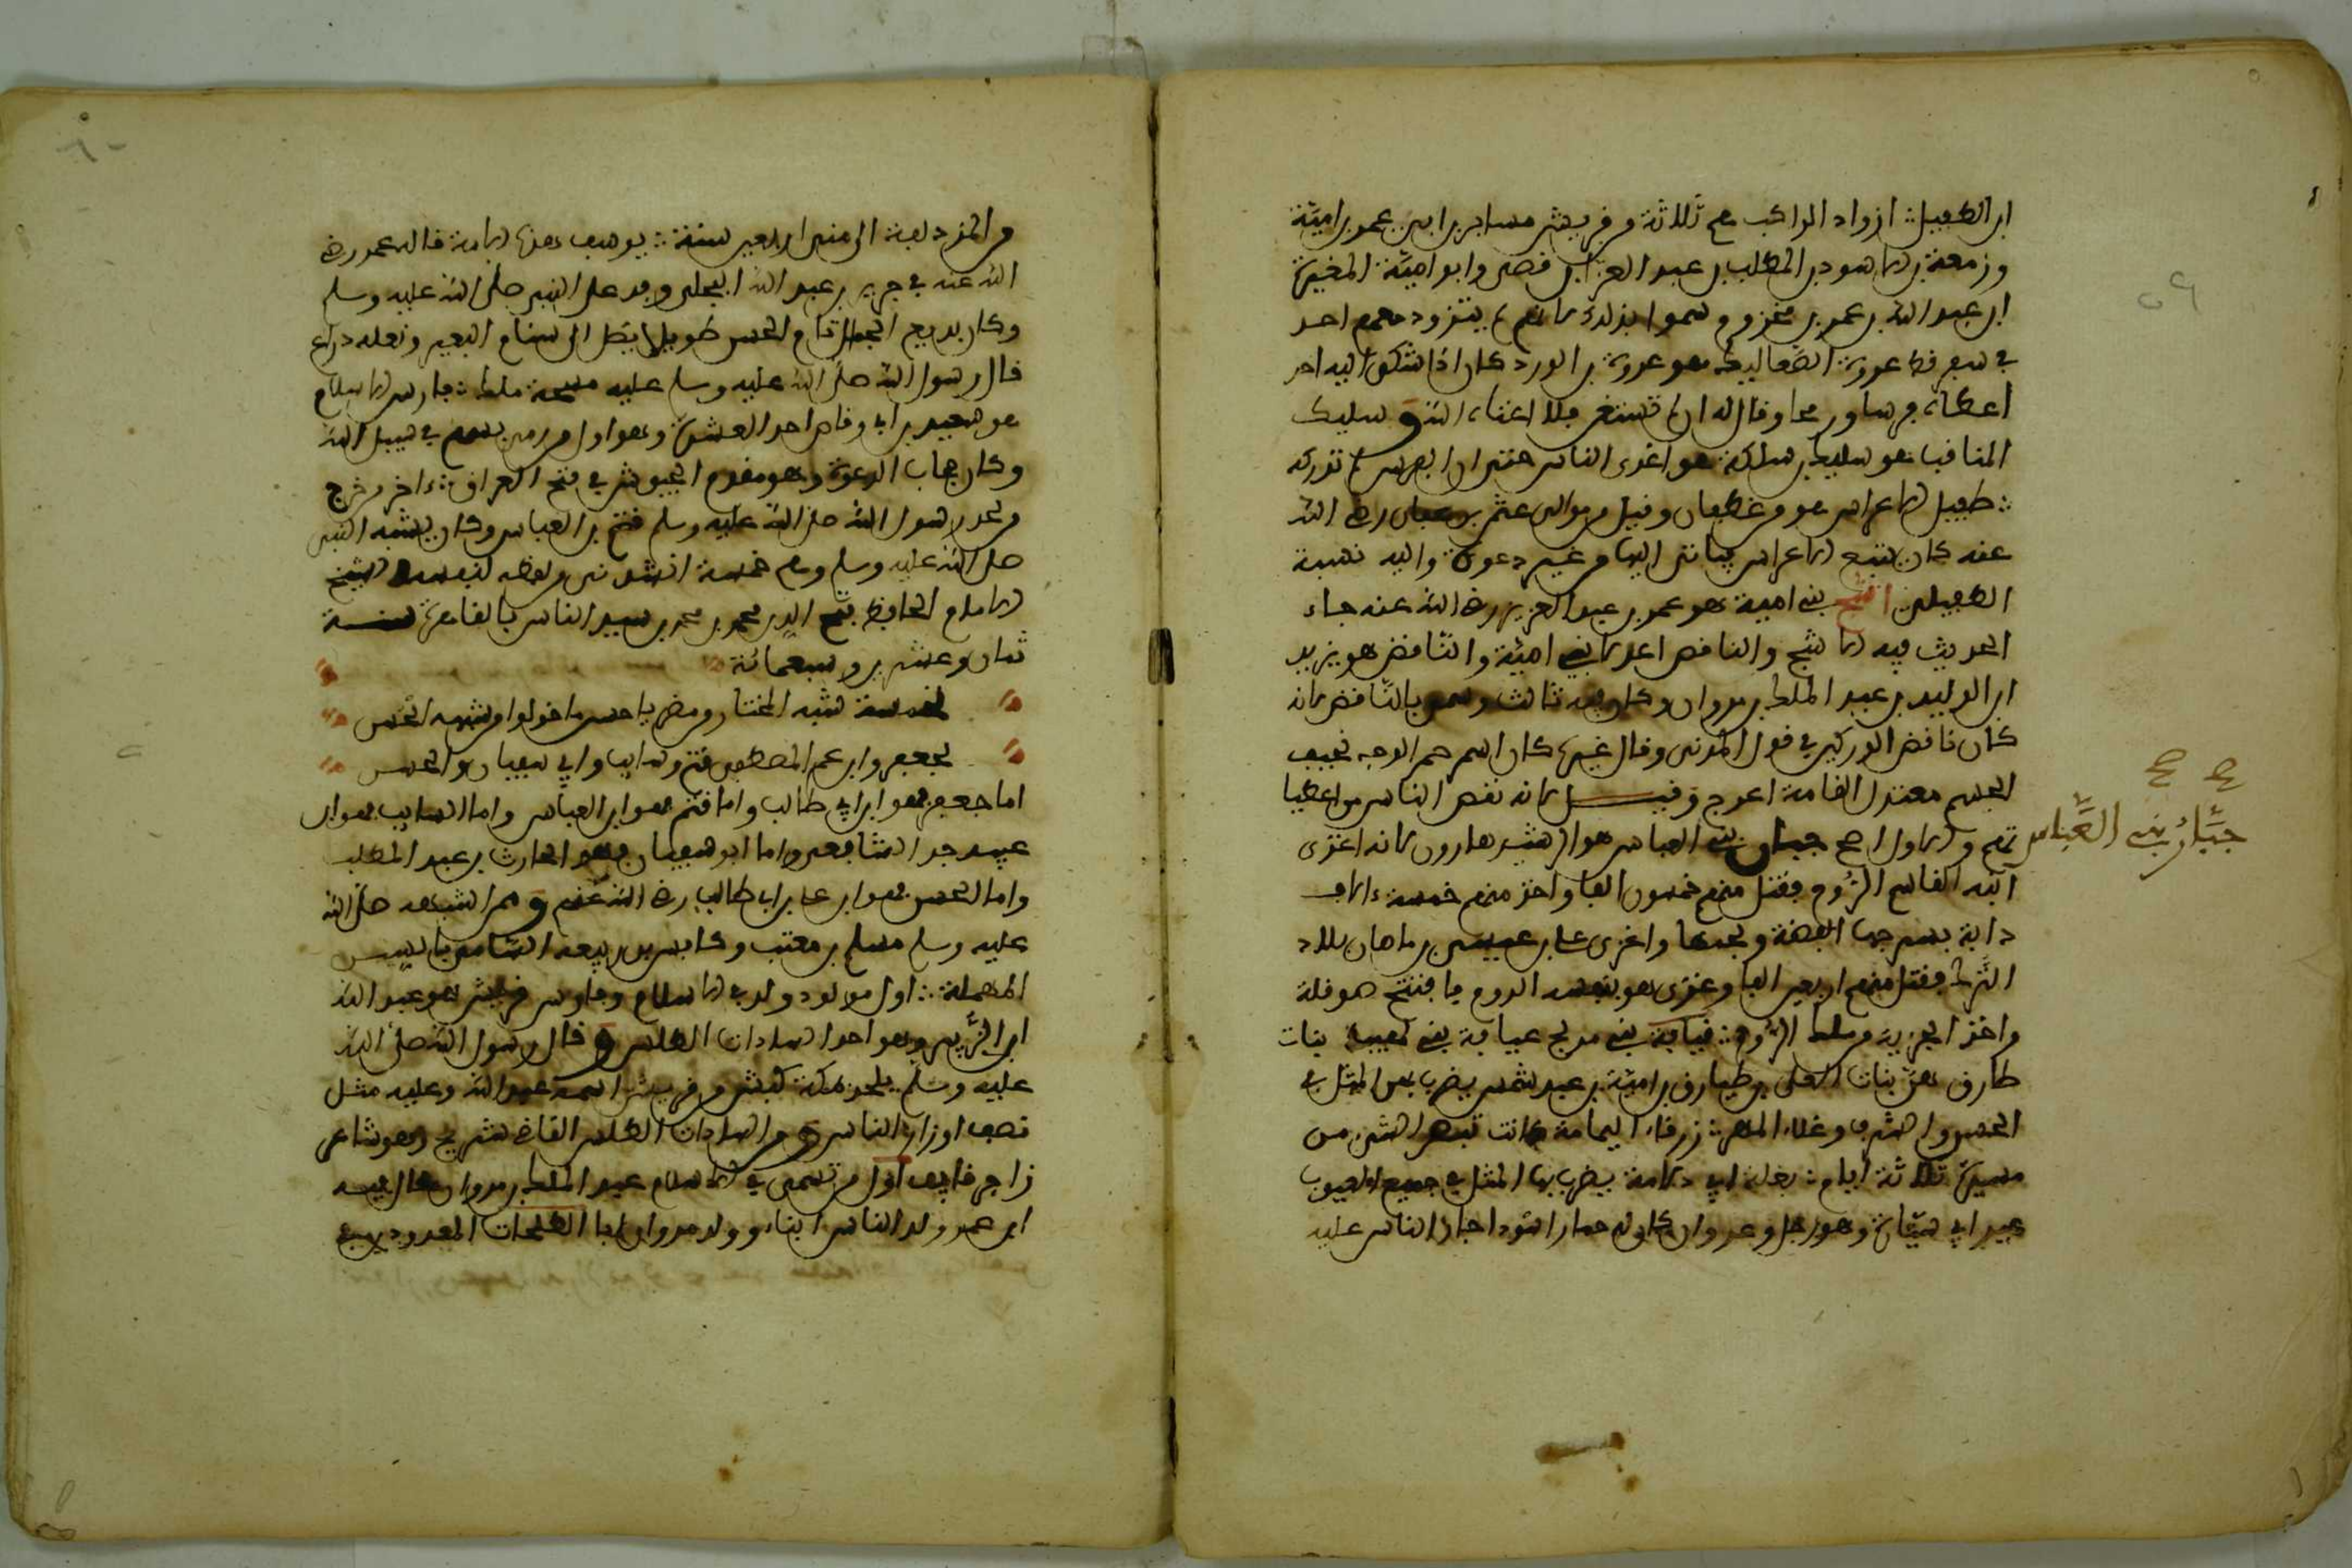 ٥٩
ابن الطفيل: ازواد الراكب هم ثلاثة من قريش مسافر بن ابي عمرو بن امية
وزمعة بن الاسود بن المطلب بن عبد العزى بن قصي وابو امية المغيرة
ابن عبد الله بن عمر بن مخزوم سموا بذلك لانهم لم يتزود معهم احد
في سفر قط عروة الصعاليك هو عروة بن الورد كان اذا شكى اليه احد
اعطاه فرسا ورمحا وقال له ان لم تستغن فلا اغناك الله و سليك
المناقب هو سليك بن سلكة هو اغزى الناس حتى ان الفرس لم تدركه
: طفيل الاعراس هو من غطفان وقيل من موالي عثمان بن عفان رضي الله
عنه كان يتبع الاعراس فياتي اليها من غير دعوة واليه نسبة
الطفيلي اشج بني امية هو عمر بن عبد العزيز رضي الله عنه جاء
الحديث فيه الاشج والناقص اعدلا بني امية والناقص هو يزيد
ابن الوليد بن عبد الملك بن مروان وكان فيه ثالث وسمي بالناقص لانه
كان ناقص الوركين في قول المدني وقال غيره كان اسمر الوجه نحيف
الجسم معتدل القامة اعرج وقيل لانه نقص الناس من اعطيا
تهم والاول اصح جبار بني العباس هو الرشيد هارون لانه اغزى
ابنه القاسم الروم فقتل منهم خمسون الفا واخذ منهم خمسة ءالاف
دابة بسرجها الفضة ولجمها واغزى علي بن عيسى بن ماهان بلاد
الترك فقتل منهم اربعين الفا وغزى هو بنفسه الروم فافتتح هرقلة
واخذ الجزية من ملك الروم: قيافة بني مدلج عيافة بني لهب بنات
طارق هن بنات العلى بن طارق بن امية بن عبد شمس يضرب بهن المثل في
الحسن والشرف وغلاء المهر: زرقاء اليمامة كانت تبصر الشي من
مسيرة ثلاثة ايام: بغلة ابي دلامة يضرب بها المثل في جميع العيوب
عير ابي سيارة وهو رجل من عدوان كان له حمار اسود اجاز الناس عليه
صح صح
جبار بني العباس
٦٠
من المزدلفة الى منى اربعين سنة: يوسف هذه الامة قاله عمر رضي
الله عنه في جرير بن عبد الله البجلي وفد على النبي صلى الله عليه وسلم
وكان بديع الجمال تام الحسن طويلا يصل الى سنام البعير ونعله ذراع
قال رسول الله صلى الله عليه وسلم عليه مسحة ملك: فارس الاسلام
هو سعد بن ابي وقاص احد العشرة وهو اول من رمى بسهم في سبيل الله
وكان مجاب الدعوة وهو مقدم الجيوش في فتح العراق: ءاخر من خرج
من لحد رسول الله صلى الله عليه وسلم قثم بن العباس وكان يشبه النبي
صلى الله عليه وسلم وهم خمسة انشدني من لفظه لنفسه الشيخ
الامام الحافظ فتح الدين محمد بن محمد بن سيد الناس بالقاهرة سنة
ثمان وعشرين وسبعمائة
لخمسة شبه المختار من مضر يا حسن ما خولوا من شبهه الحسن
لجعفر وابن عم المصطفى قثم وسايب وابي سفيان والحسن
اما جعفر فهو ابن ابي طالب واما قثم فهو ابن العباس واما السايب فهو ابن
عبيد جد الشافعي واما ابو سفيان فهو الحارث بن عبد المطلب
واما الحسن فهو ابن علي بن ابي طالب رضي الله عنهم و ممن اشبهه صلى الله
عليه وسلم مسلم بن معتب وكابس بن ربيعة السامي بالسين
المهملة: اول مولود ولد في الاسلام من قريش هو عبد الله
ابن الزبير وهو احد السادات الطلس و قال رسول الله صلى الله
عليه وسلم يلحد بمكة كبش من قريش اسمه عبد الله وعليه مثل
نصف اوزار الناس و من السادات الطلس القاضي شريح وهو شاعر
زاجر قايف اول من تسمى في الاسلام عبد الملك بن مروان قال فيه
ابن عمر ولد الناس ابناء وولد مروان ابا الطلحات المعدودين في